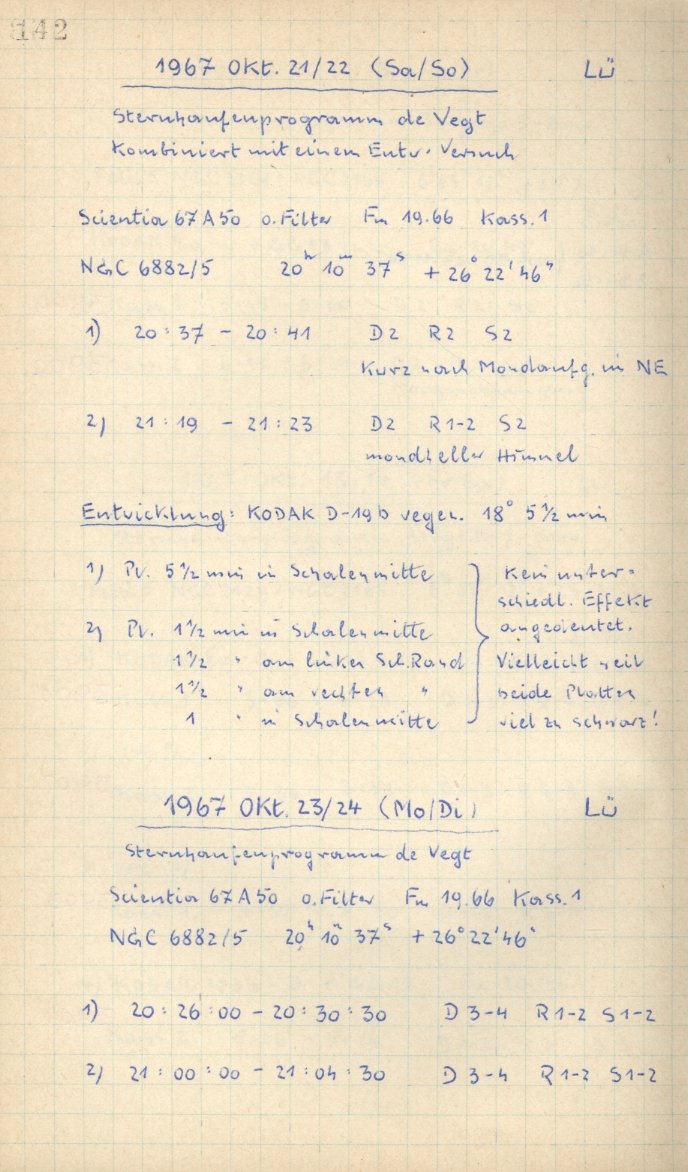 142
1967 Okt. 21/22 (Sa/So) Lü
Sternhaufenprogramm de Vegt
Kombiniert mit einem Entw. Versuch
Scientia 67A50 o. Filter Em 19.66 Kass. 1
NGC 6882/5 20ʰ 10ᵐ 37ˢ + 26° 22' 46"
1) 20:37 - 20:41 D2 R2 S2
Kurz nach Mondaufg. in NE
2) 21:19 - 21:23 D2 R1-2 S2
mondheller Himmel
Entwicklung: KODAK D-19b regen. 18° 5 1/2 min
1) Pl. 5 1/2 min in Schalenmitte
2) Pl. 1 1/2 min in Schalenmitte
1 1/2 " am linken Sch. Rand
1 1/2 " am rechten "
1 " in Schalenmitte
Kein unter=
schiedl. Effekt
angedeutet.
Vielleicht weil
beide Platten
viel zu schwarz!
1967 Okt. 23/24 (Mo/Di) Lü
Sternhaufenprogramm de Vegt
Scientia 67A50 o. Filter Em 19.66 Kass. 1
NGC 6882/5 20ʰ 10ᵐ 37ˢ + 26° 22' 46"
1) 20:26:00 - 20:30:30 D3-4 R1-2 S1-2
2) 21:00:00 - 21:04:30 D3-4 R1-2 S1-2